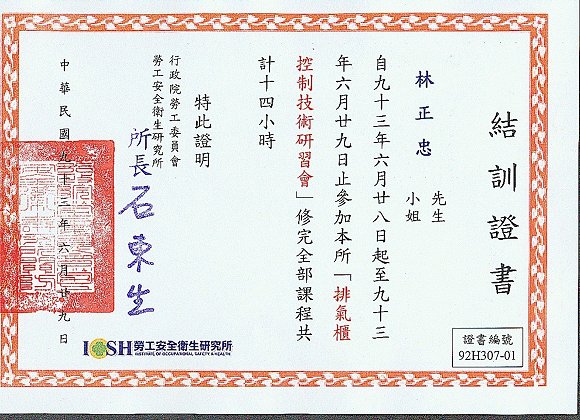 結訓證書
林正忠
先生
小姐
自九十三年六月廿八日起至九十三
年六月廿九日止參加本所「排氣櫃
控制技術研習會」修完全部課程共
計十四小時
特此證明
行政院勞工委員會
勞工安全衛生研究所
所長 石東生
中華民國九十三年六月廿九日
IOSH 勞工安全衛生研究所
INSTITUTE OF OCCUPATIONAL SAFETY & HEALTH
證書編號
92H307-01